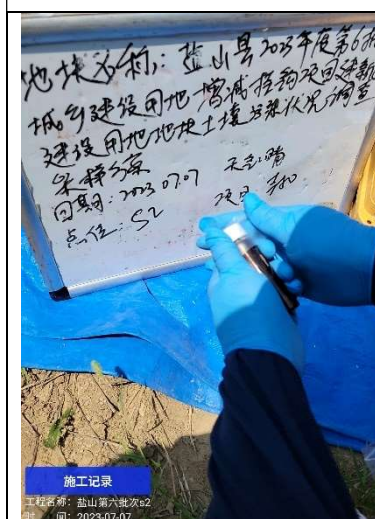 地块名称：盐山县2023年度第6批
城乡建设用地增减挂钩项目建新
建设用地地块土壤污染状况调查
采样方案
日期：2023.07.07 天气：晴
点位：S2 项目
施工记录
工程名称：盐山第六批次s2
时 间：2023-07-07